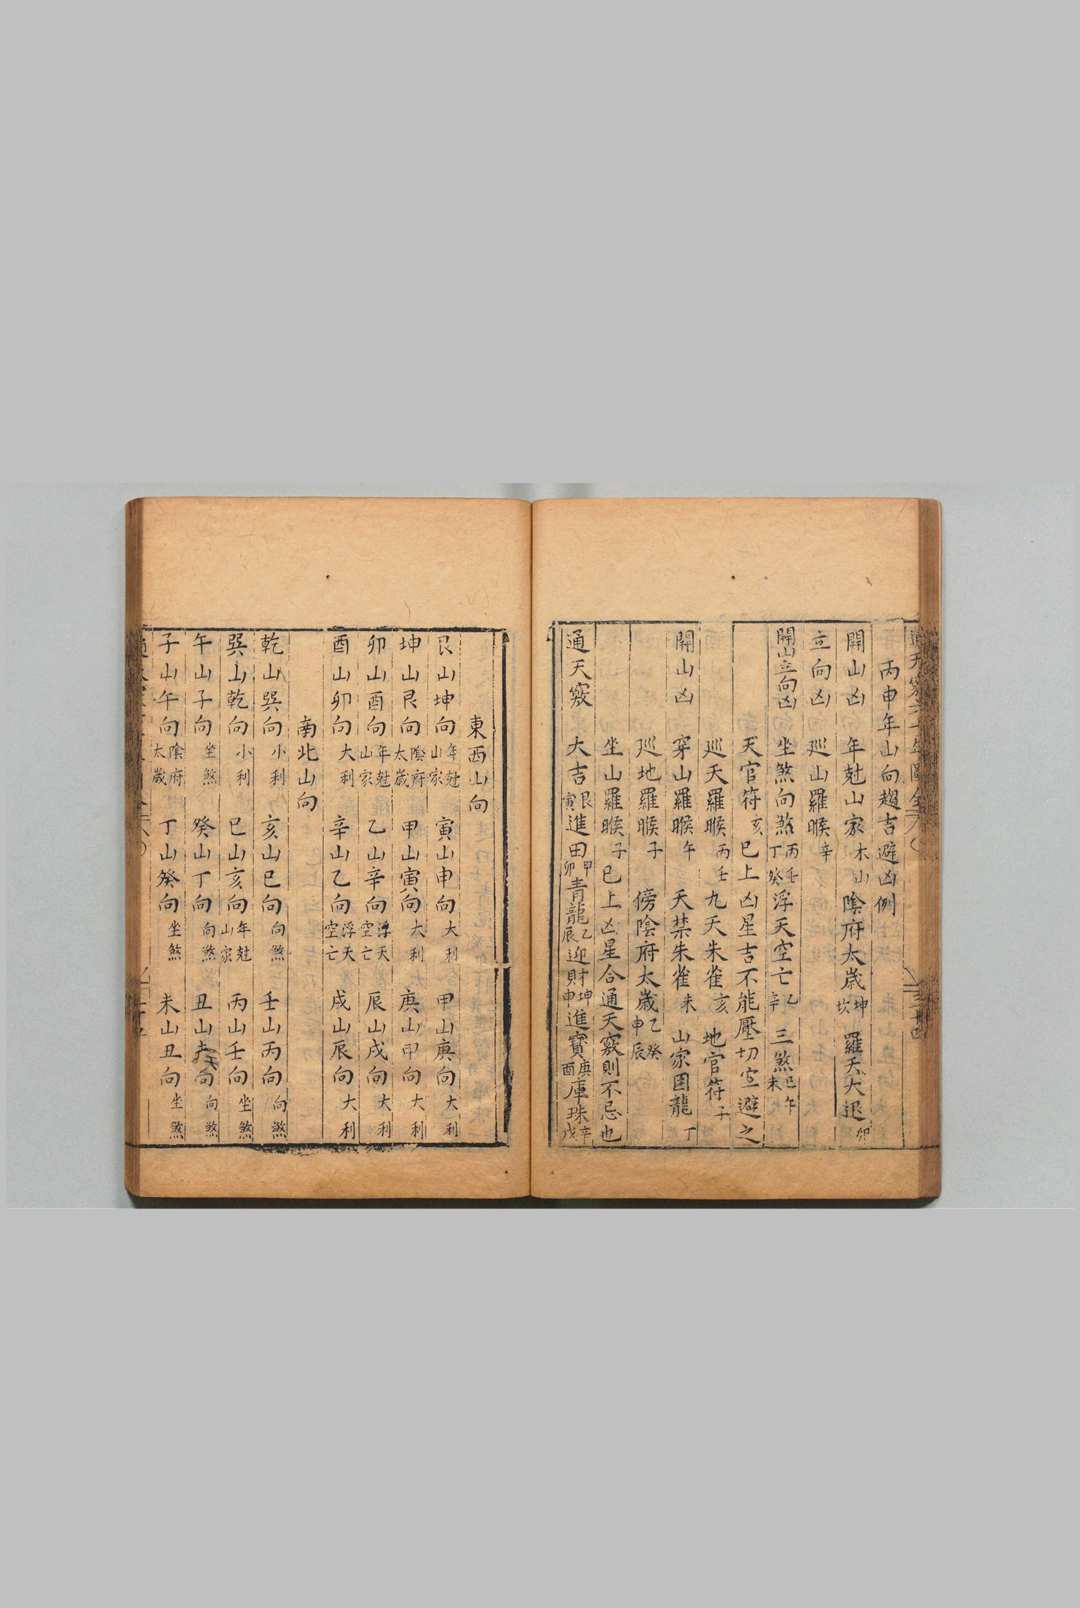 丙申年山向趨吉避凶例
開山凶 年尅山家木山 陰府太歲坤坎 羅天大退卯
立向凶 巡山羅睺辛
開山立向凶 坐煞向煞丙壬丁癸 浮天空亡乙辛 三煞巳午未
天官符亥 巳上凶星吉不能壓切宜避之
巡天羅睺丙壬 九天朱雀亥 地官符子
開山凶 穿山羅睺午 天禁朱雀未 山家困龍丁
巡地羅睺子 傍陰府太歲乙癸申辰
坐山羅睺子 巳上凶星合通天竅則不忌也
通天竅 大吉艮寅 進田甲卯 青龍乙辰 迎財坤申 進寶庚酉 庫珠辛戌
東西山向
艮山坤向年尅山家 寅山申向大利 甲山庚向大利
坤山艮向陰府太歲 申山寅向大利 庚山甲向大利
卯山酉向年尅山家 乙山辛向浮天空亡 辰山戌向大利
酉山卯向大利 辛山乙向浮天空亡 戌山辰向大利
南北山向
乾山巽向小利 亥山巳向向煞 壬山丙向向煞
巽山乾向小利 巳山亥向年尅山家 丙山壬向坐煞
午山子向坐煞 癸山丁向向煞 丑山未向向煞
子山午向陰府太歲 丁山癸向坐煞 未山丑向坐煞